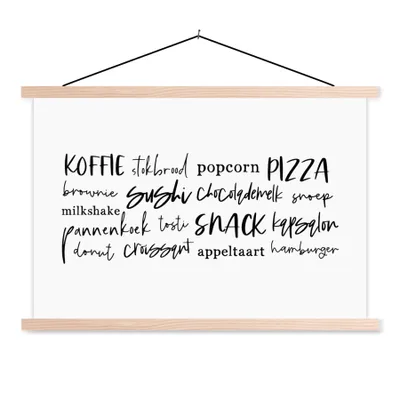 KOFFIE stokbrood popcorn PIZZA
brownie sushi chocolademelk snoep
milkshake
pannenkoek tosti SNACK kapsalon
donut croissant appeltaart hamburger